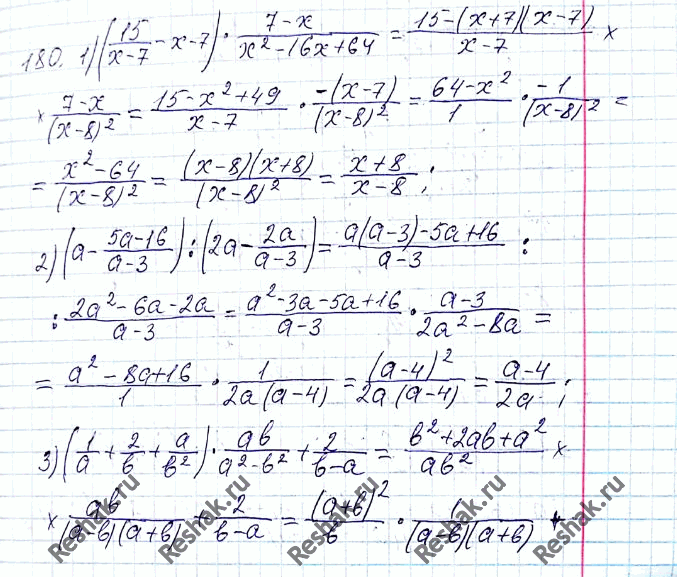 180. 1) (15/(x-7) - x - 7) · (7-x)/(x²-16x+64) = (15-(x+7)(x-7))/(x-7) ×
× (7-x)/(x-8)² = (15-x²+49)/(x-7) · (-(x-7))/(x-8)² = (64-x²)/1 · (-1)/(x-8)² =
= (x²-64)/(x-8)² = ((x-8)(x+8))/(x-8)² = (x+8)/(x-8);
2) (a - (5a-16)/(a-3)) : (2a - 2a/(a-3)) = (a(a-3)-5a+16)/(a-3) :
: (2a²-6a-2a)/(a-3) = (a²-3a-5a+16)/(a-3) · (a-3)/(2a²-8a) =
= (a²-8a+16)/1 · 1/(2a(a-4)) = (a-4)²/(2a(a-4)) = (a-4)/(2a);
3) (1/a + 2/b + a/b²) · ab/(a²-b²) + 2/(b-a) = (b²+2ab+a²)/(ab²) ×
× ab/((a-b)(a+b)) + 2/(b-a) = (a+b)²/b · 1/((a-b)(a+b)) +
Reshak.ru Reshak.ru Reshak.ru Reshak.ru Reshak.ru